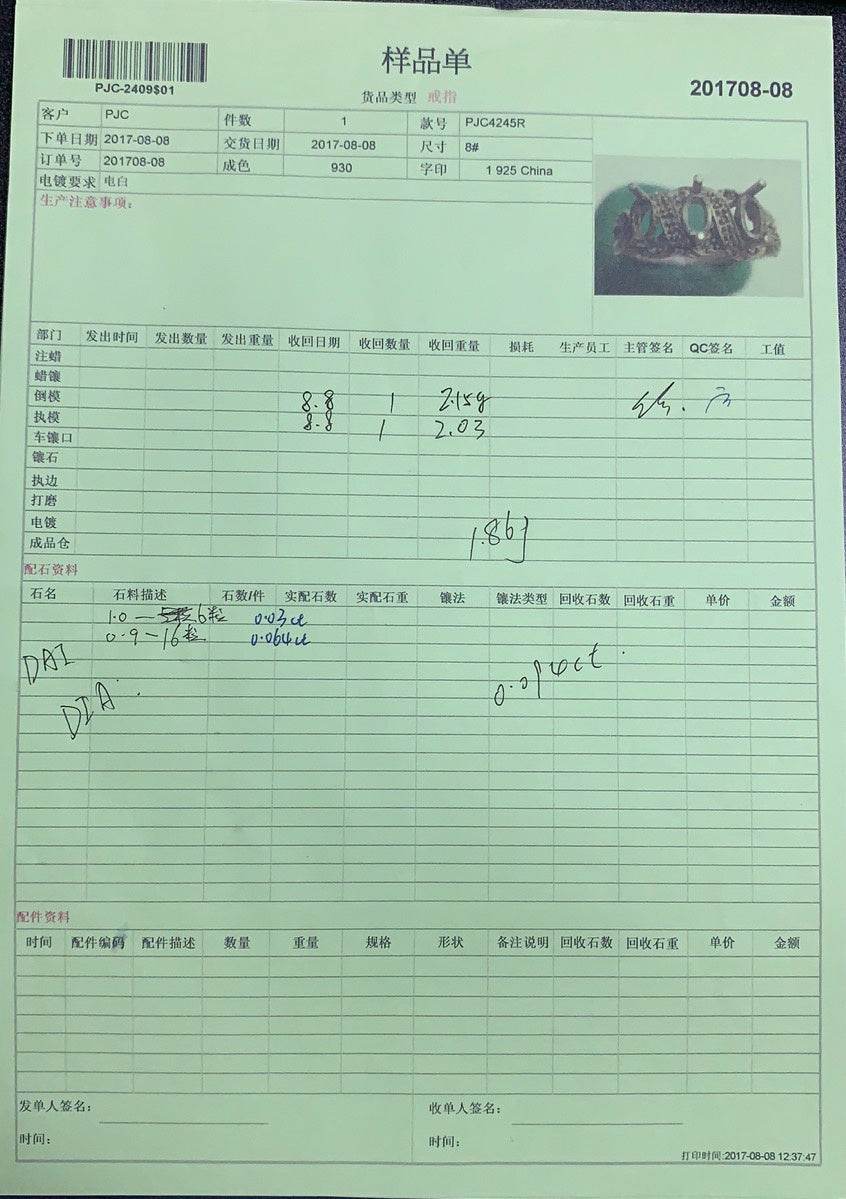 样品单
PJC-2409$01
货品类型 戒指
201708-08
客户 PJC 件数 1 款号 PJC4245R
下单日期 2017-08-08 交货日期 2017-08-08 尺寸 8#
订单号 201708-08 成色 930 字印 1 925 China
电镀要求 电白
生产注意事项:
部门 发出时间 发出数量 发出重量 收回日期 收回数量 收回重量 损耗 生产员工 主管签名 QC签名 工值
注蜡
蜡镶
倒模 8.8 1 2.15g
执模 8.8 1 2.03
车镶口
镶石
执边
打磨
电镀 1.86g
成品仓
配石资料
石名 石料描述 石数/件 实配石数 实配石重 镶法 镶法类型 回收石数 回收石重 单价 金额
1.0 — 6粒 0.03ct
0.9 — 16粒 0.064ct
DAI
DIA
配件资料
时间 配件编码 配件描述 数量 重量 规格 形状 备注说明 回收石数 回收石重 单价 金额
发单人签名: 收单人签名:
时间: 时间:
打印时间:2017-08-08 12:37:47